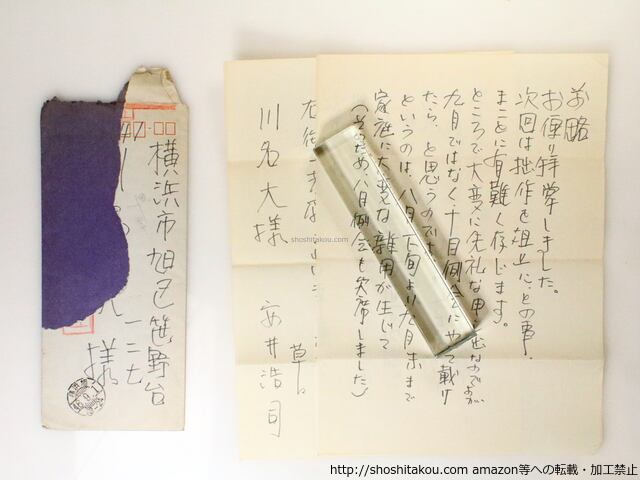 前略
お便り拝掌しました。
次回は拙作を俎上に、との事、
まことに有難く存じます。
ところで大変に失礼な申し なのですが
九月ではなく、十月例会にやって載け
たら、と思うのです
というのは、八月下旬より九月末まで
家庭に大変な雑用が生じて
(そのため、八月例会も欠席しました)
草々
安井浩司
川名大様
横浜市旭区笹野台
一二七
様
shoshitakou.com
http://shoshitakou.com amazon等への転載・加工禁止